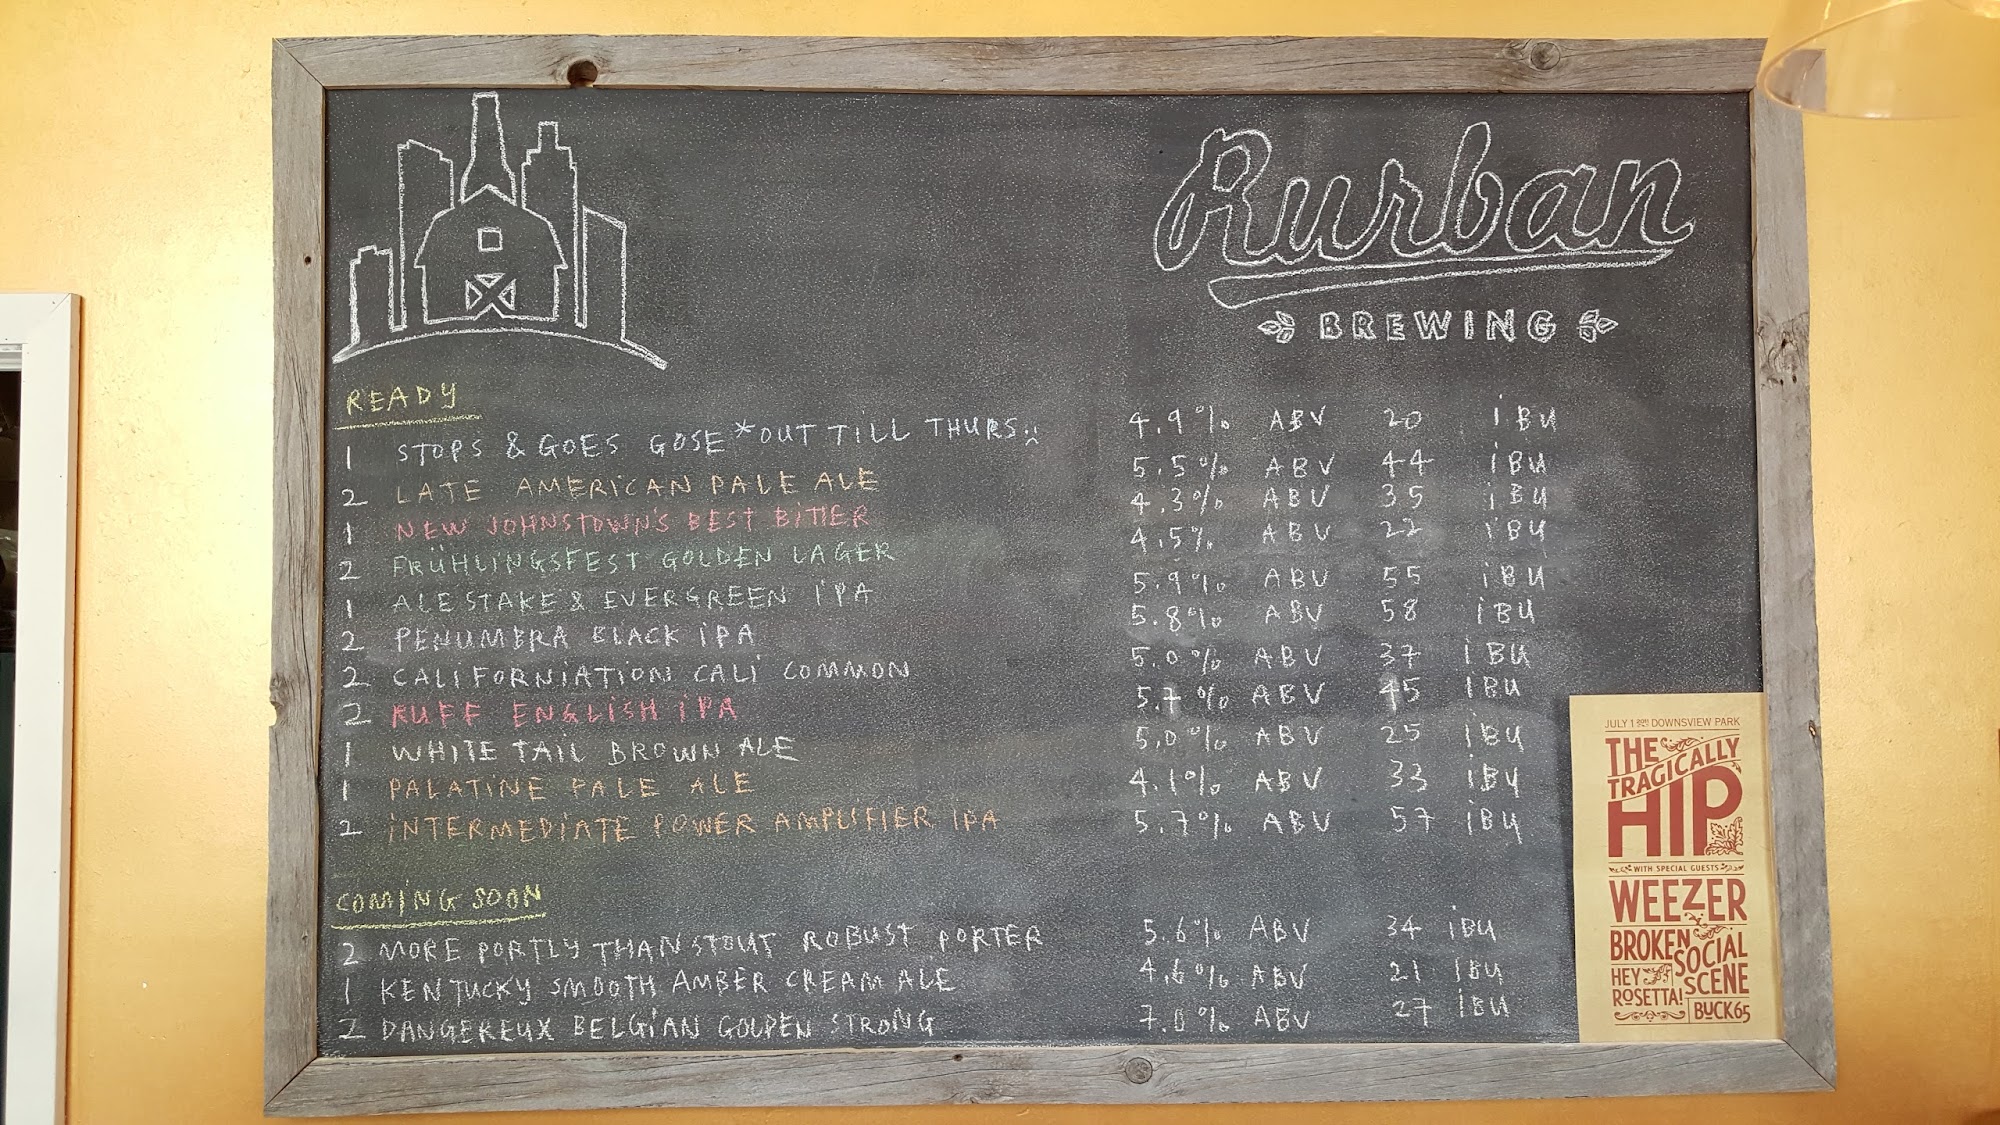 Rurban
BREWING
READY
1 STOPS & GOES GOSE *OUT TILL THURS :( 4.9% ABV 20 iBU
2 LATE AMERICAN PALE ALE 5.5% ABV 44 iBU
1 NEW JOHNSTOWN'S BEST BITTER 4.3% ABV 35 iBU
2 FRÜHLINGSFEST GOLDEN LAGER 4.5% ABV 22 iBU
1 ALE STAKE & EVERGREEN iPA 5.9% ABV 55 iBU
2 PENUMBRA BLACK iPA 5.8% ABV 58 iBU
2 CALiFORNiATiON CALi COMMON 5.0% ABV 37 iBU
2 RUFF ENGLiSH iPA 5.7% ABV 45 iBU
1 WHITE TAIL BROWN ALE 5.0% ABV 25 iBU
1 PALATiNE PALE ALE 4.1% ABV 33 iBU
2 iNTERMEDiATE POWER AMPLiFiER iPA 5.7% ABV 57 iBU
COMiNG SOON
2 MORE PORTLY THAN STOUT ROBUST PORTER 5.6% ABV 34 iBU
1 KENTUCKY SMOOTH AMBER CREAM ALE 4.6% ABV 21 iBU
2 DANGEREUX BELGiAN GOLDEN STRONG 7.0% ABV 27 iBU
JULY 1 DOWNSVIEW PARK
THE
TRAGICALLY
HIP
WITH SPECIAL GUESTS
WEEZER
BROKEN
SOCIAL
SCENE
HEY
ROSETTA!
BUCK65